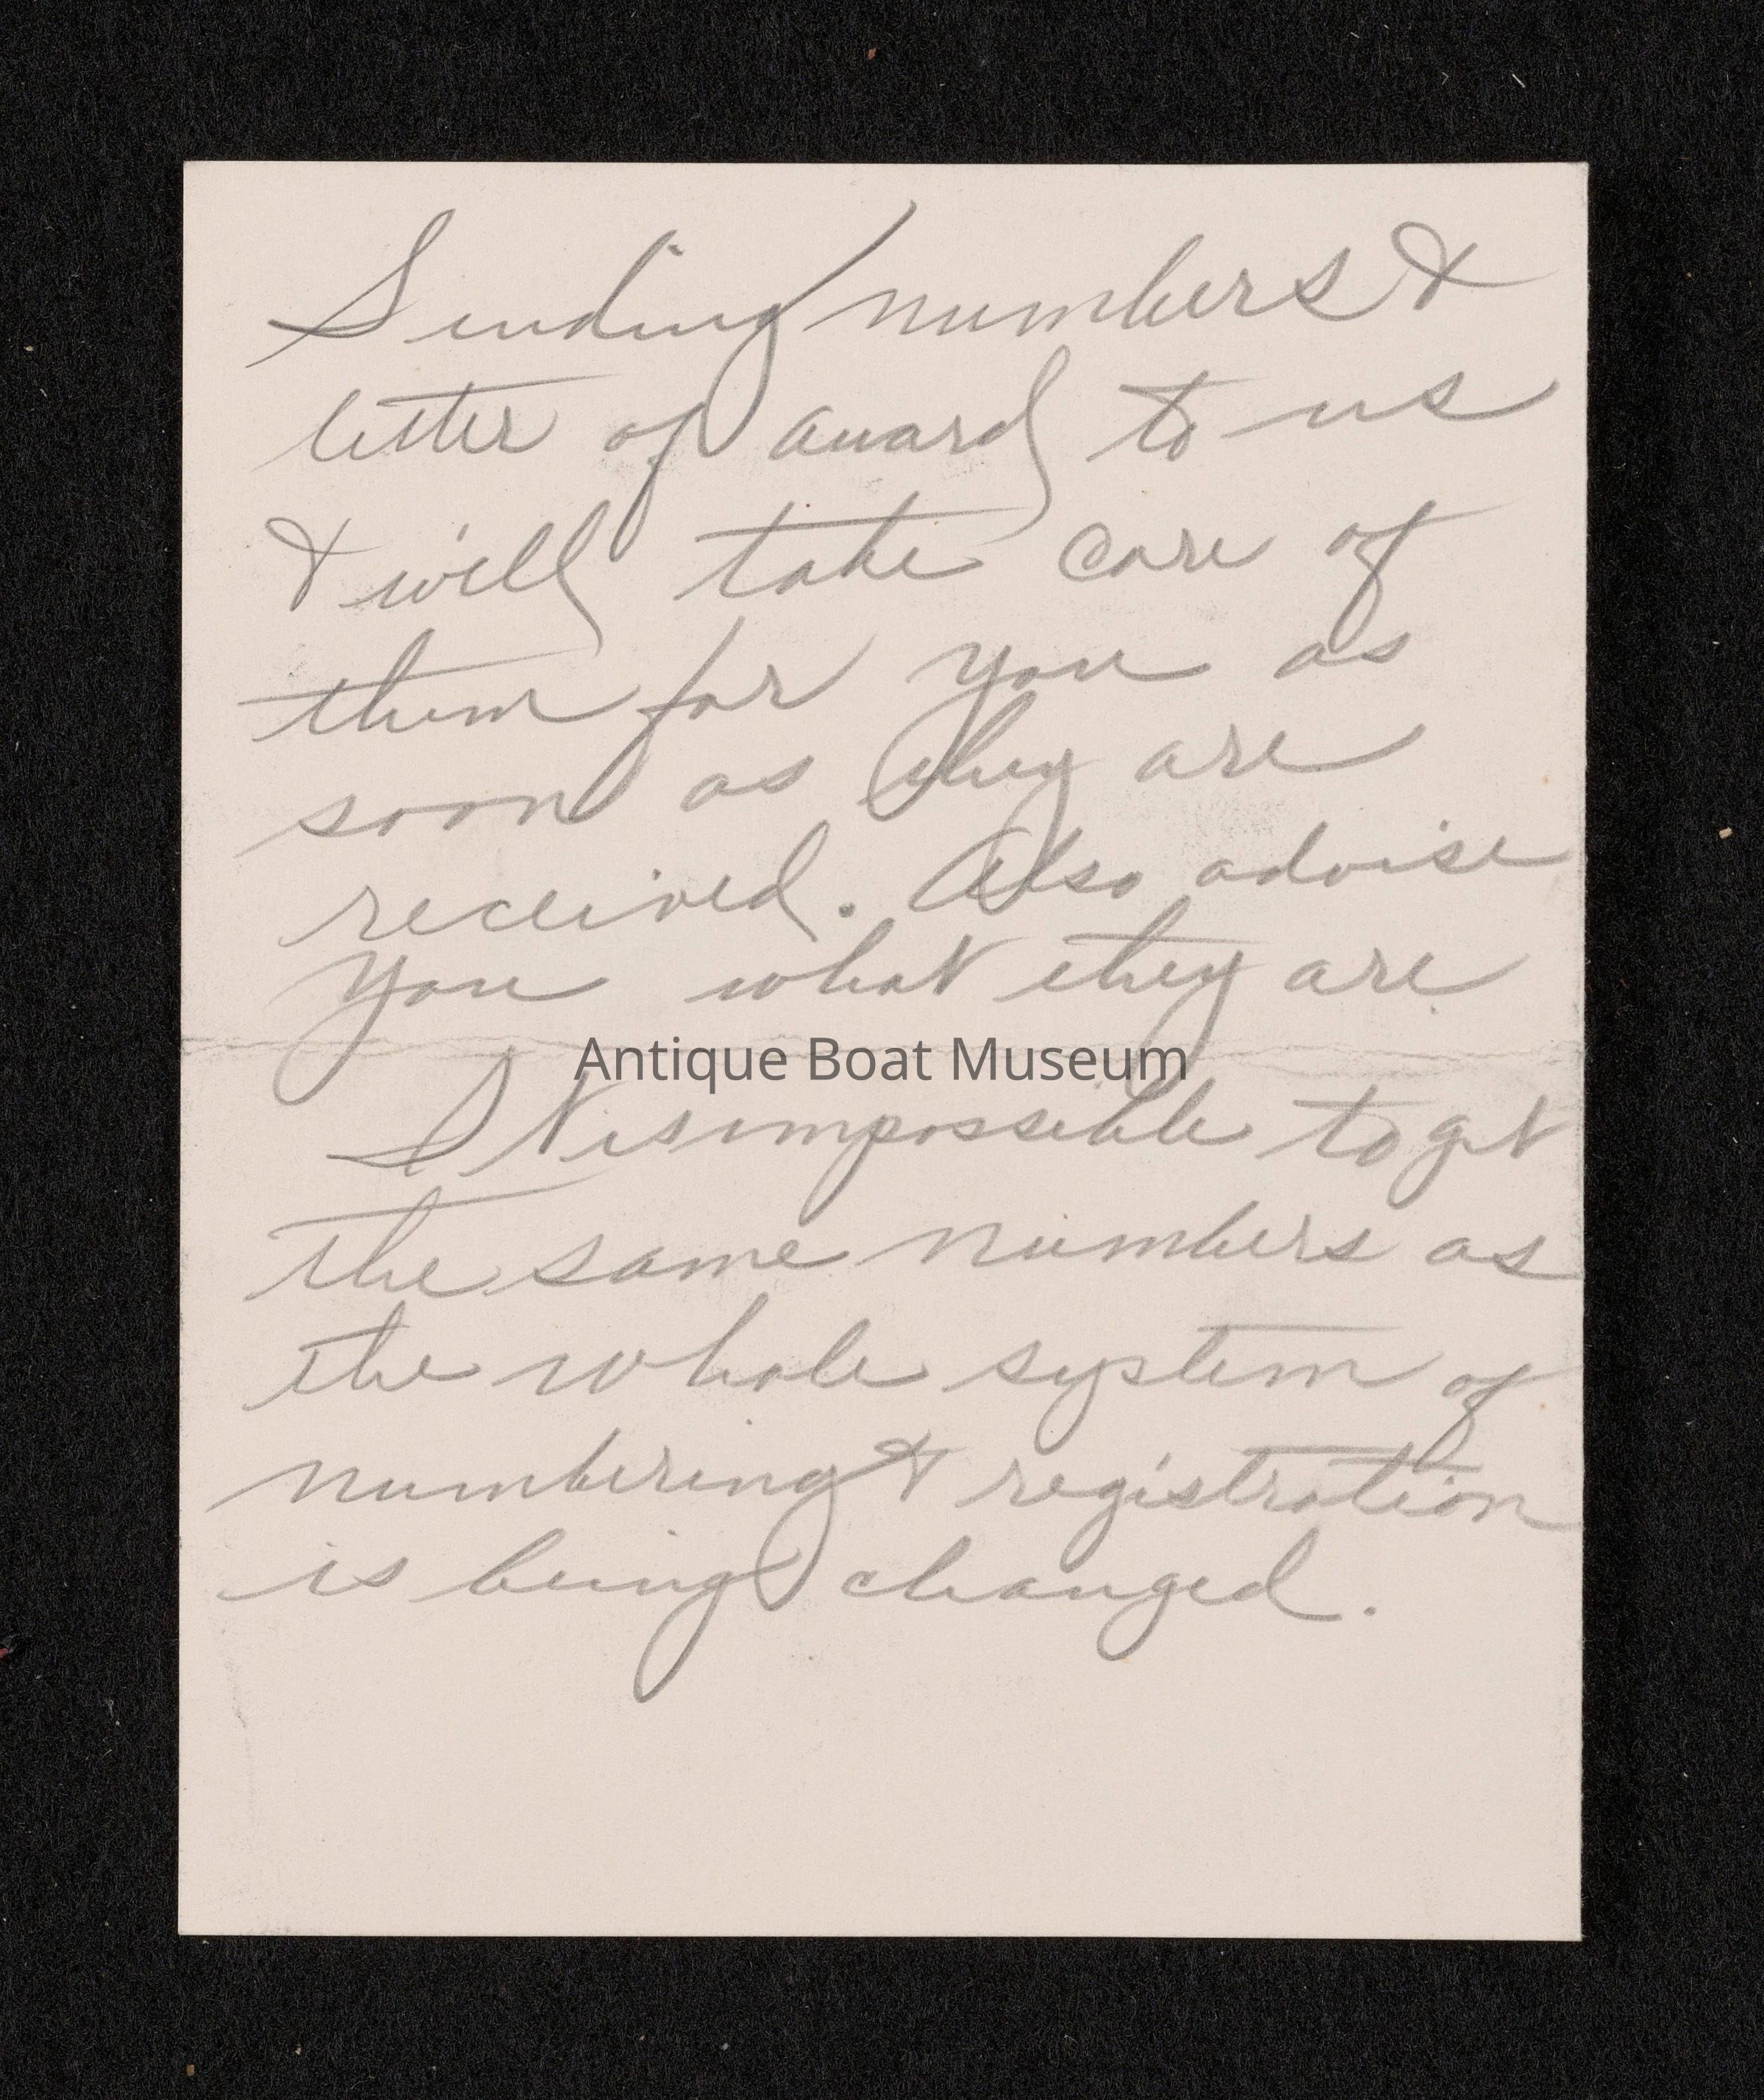 Sending numbers &
letter of award to us
& will take care of
them for you as
soon as they are
received. Also advise
you what they are
Antique Boat Museum
It is impossible to get
the same numbers as
the whole system of
numbering & registration
is being changed.